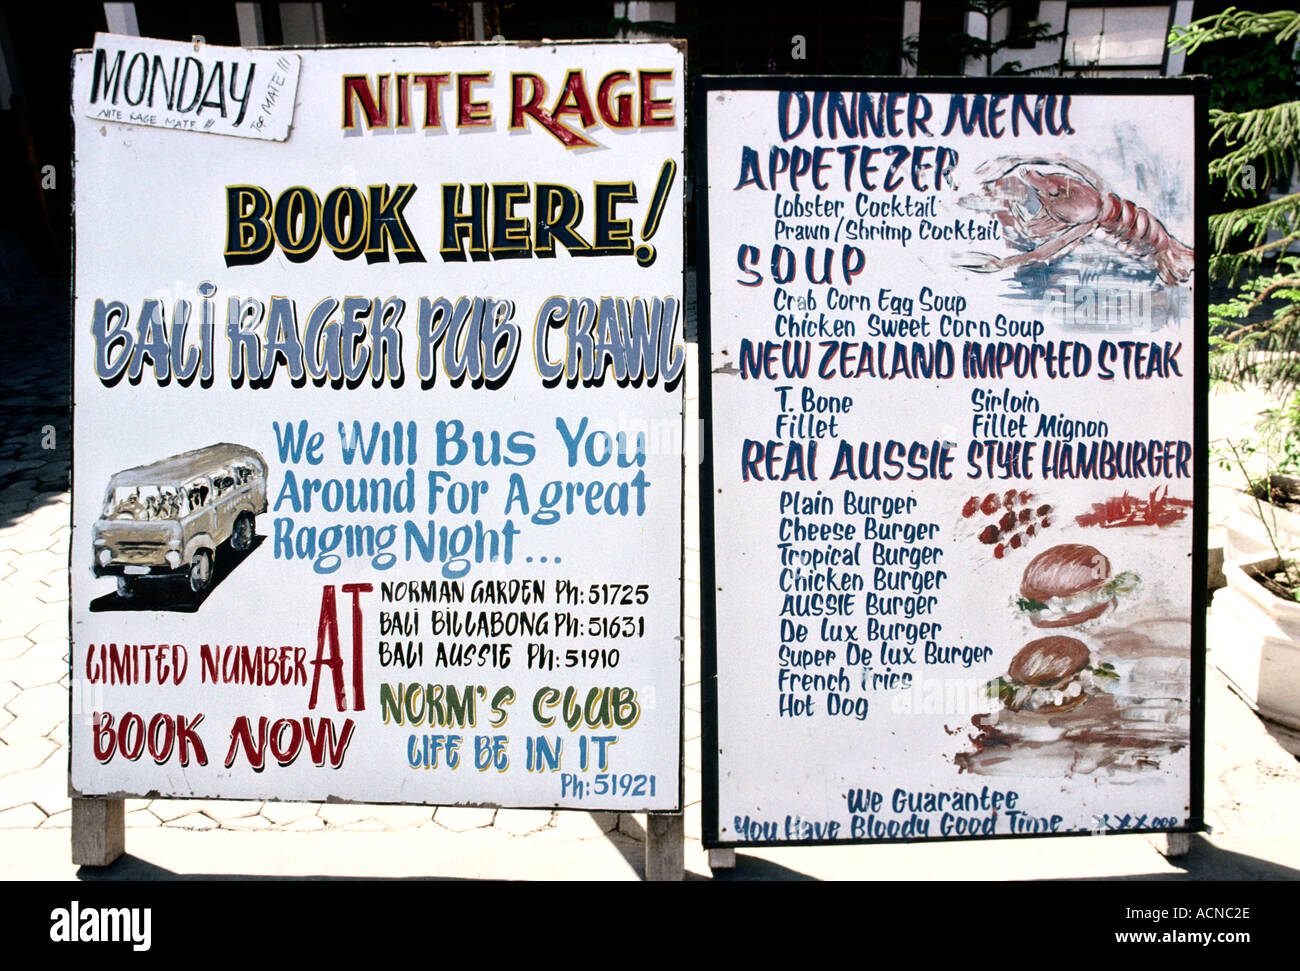 MONDAY
NITE RAGE MATE !!!
TOP MATE !!!
NITE RAGE
BOOK HERE!
BALI RAGER PUB CRAWL
We Will Bus You
Around For A great
Raging Night...
LIMITED NUMBER
BOOK NOW
AT
NORMAN GARDEN Ph: 51725
BALI BILLABONG Ph: 51631
BALI AUSSIE Ph: 51910
NORM'S CLUB
LIFE BE IN IT
Ph: 51921
DINNER MENU
APPETEZER
Lobster Cocktail
Prawn/Shrimp Cocktail
SOUP
Crab Corn Egg Soup
Chicken Sweet Corn Soup
NEW ZEALAND IMPORTED STEAK
T. Bone
Fillet
Sirloin
Fillet Mignon
REAL AUSSIE STYLE HAMBURGER
Plain Burger
Cheese Burger
Tropical Burger
Chicken Burger
AUSSIE Burger
De Lux Burger
Super De Lux Burger
French Fries
Hot Dog
We Guarantee
You Have Bloody Good Time... XXX
alamy
Image ID: ACNC2E
www.alamy.com